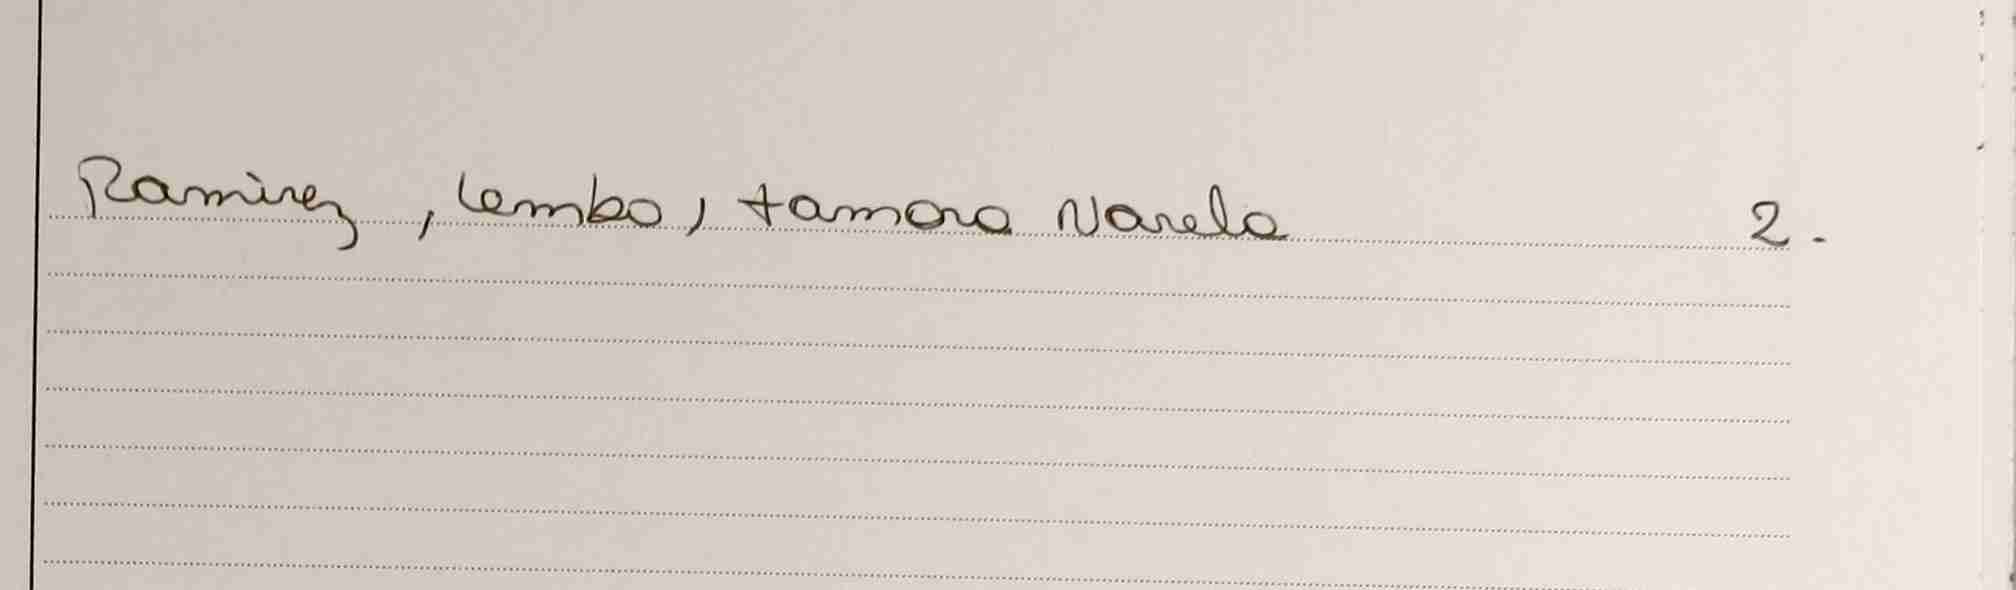 Ramirez, Lembo, tamara Varela 2.